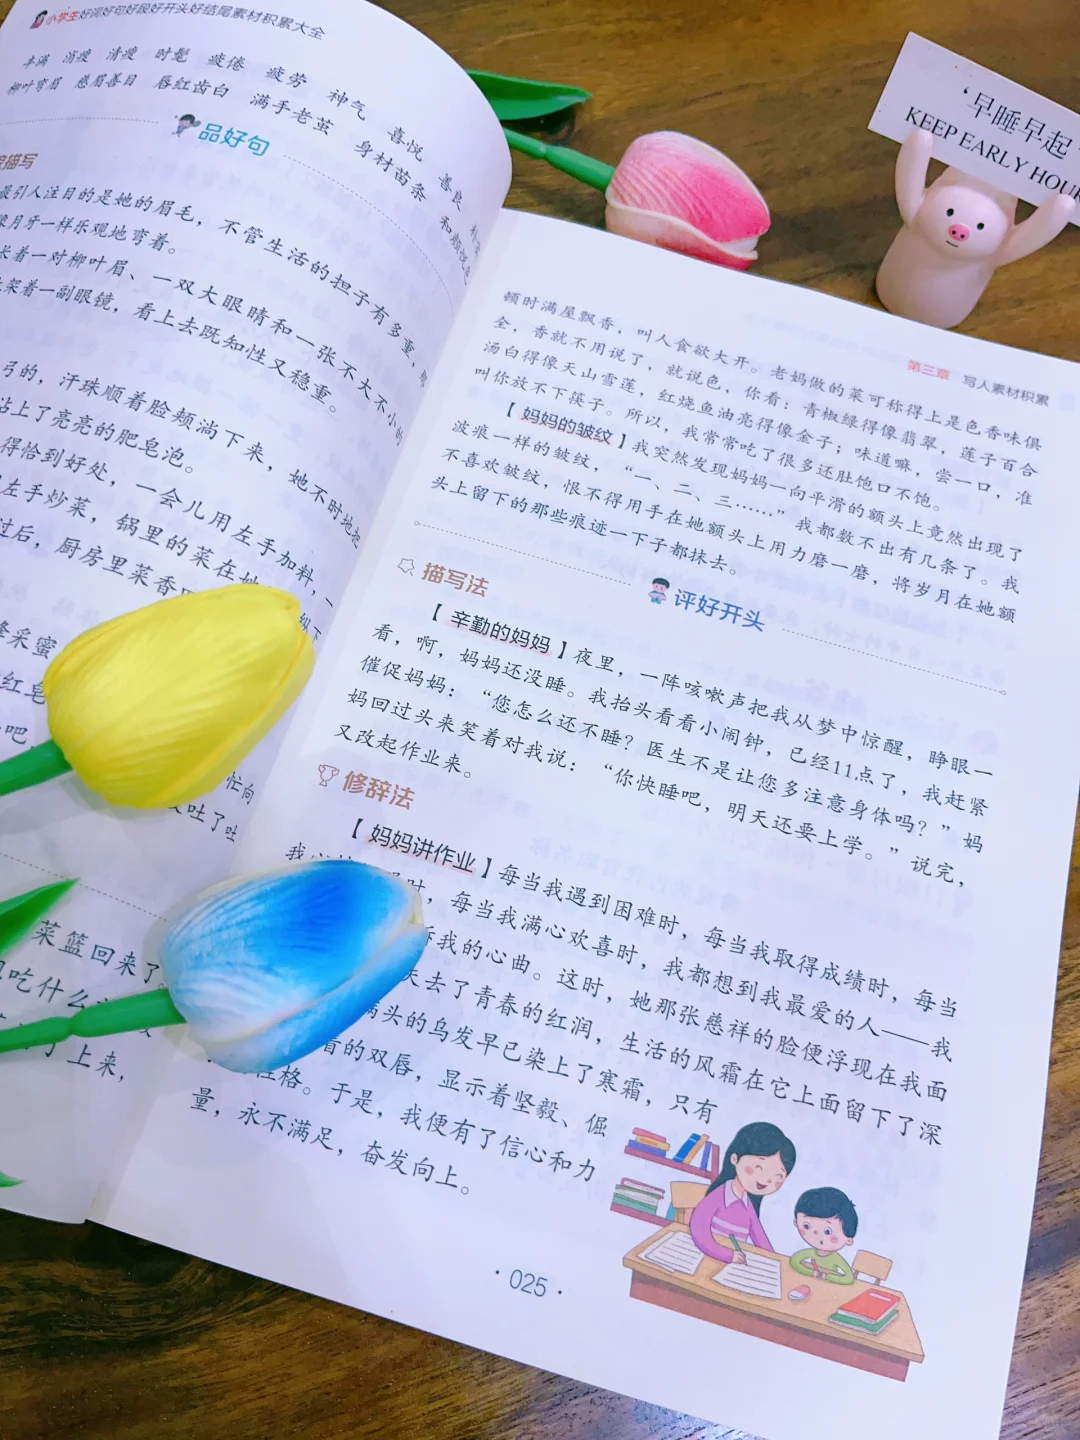 小学生好词好句好段好开头好结尾素材积累大全
丰满 消瘦 清瘦 时髦 疲倦 疲劳 神气 喜悦 善良
柳叶弯眉 慈眉善目 唇红齿白 满手老茧 身材苗条 和颜悦色
品好句
描写
最引人注目的是她的眉毛，不管生活的担子有多重，
像月牙一样乐观地弯着。
长着一对柳叶眉、一双大眼睛和一张不大不小的
架着一副眼镜，看上去既知性又稳重。
弓的，汗珠顺着脸颊淌下来，她不时地把
沾上了亮亮的肥皂泡。
得恰到好处，一会儿用左手加料，一
左手炒菜，锅里的菜在她
过后，厨房里菜香
蜂采蜜
红皂
吧
忙向
吐了吐
菜篮回来了。
吃什么
上来，
'早睡早起'
KEEP EARLY HOUR
第三章 写人素材积累
顿时满屋飘香，叫人食欲大开。老妈做的菜可称得上是色香味俱
全，香就不用说了，就说色，你看：青椒绿得像翡翠，莲子百合
汤白得像天山雪莲，红烧鱼油亮得像金子；味道嘛，尝一口，准
叫你放不下筷子。所以，我常常吃了很多还肚饱口不饱。
【妈妈的皱纹】我突然发现妈妈一向平滑的额头上竟然出现了
波痕一样的皱纹，“一、二、三……”我都数不出有几条了。我
不喜欢皱纹，恨不得用手在她额头上用力磨一磨，将岁月在她额
头上留下的那些痕迹一下子都抹去。
评好开头
描写法
【辛勤的妈妈】夜里，一阵咳嗽声把我从梦中惊醒，睁眼一
看，啊，妈妈还没睡。我抬头看看小闹钟，已经11点了，我赶紧
催促妈妈：“您怎么还不睡？医生不是让您多注意身体吗？”妈
妈回过头来笑着对我说：“你快睡吧，明天还要上学。”说完，
又改起作业来。
修辞法
【妈妈讲作业】每当我遇到困难时，每当我取得成绩时，每当
我 时，每当我满心欢喜时，我都想到我最爱的人——我
诉我的心曲。这时，她那张慈祥的脸便浮现在我面
失去了青春的红润，生活的风霜在它上面留下了深
满头的乌发早已染上了寒霜，只有
的双唇，显示着坚毅、倔
性格。于是，我便有了信心和力
量，永不满足，奋发向上。
·025·